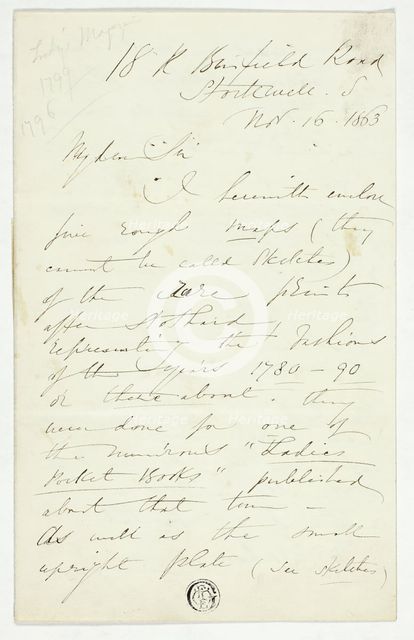 Lady's Magazine
1799
1796
18 K Binfield Road
Stockwell. S
Nov. 16. 1863
My dear Sir
I herewith enclose
five rough maps (they
cannot be called sketches)
of the rare prints
after Stothard
representing the Fashions
of the years 1780 - 90
or there about. they
were done for one of
the numerous "Ladies
Pocket Books" published
about that time -
As well as the small
upright plate (see sketches)
Heritage
Heritage
Heritage
Heritage